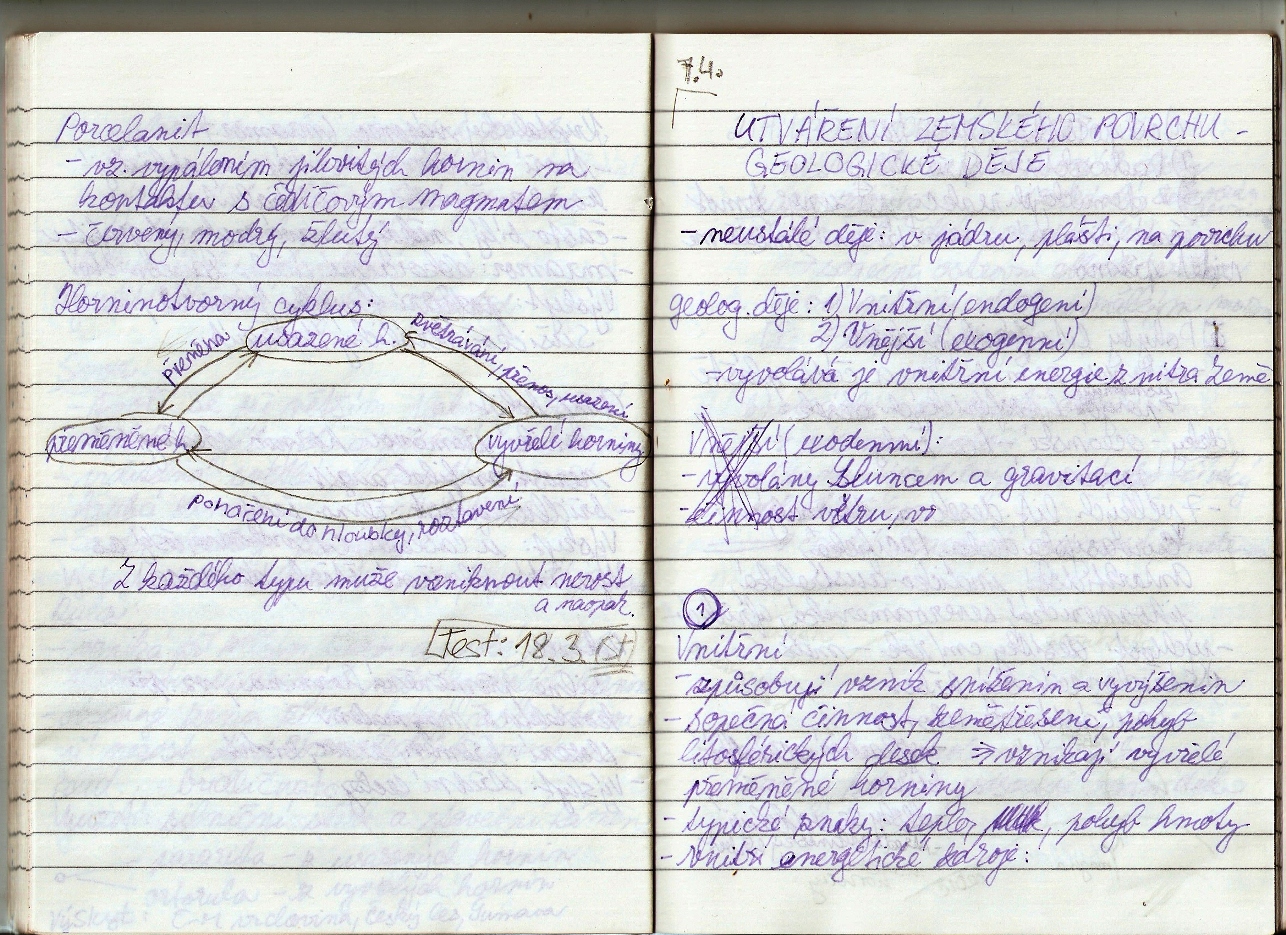 Porcelanit
- vz. vypálením jílovitých hornin na
kontaktu s čedičovým magmatem
- červený, modrý, žlutý
Horninotvorný cyklus:
usazené h.
přeměna
zvětrávání, přenos, usazení
přeměněné h.
vyvřelé horniny
ponáření do hloubky, roztavení
Z každého typu může vzniknout nerost
a naopak.
Test: 18.3.
7.4.
UTVÁŘENÍ ZEMSKÉHO POVRCHU -
GEOLOGICKÉ DĚJE
- neustálé děje: v jádru, plášti, na povrchu
geolog. děje: 1) Vnitřní (endogení)
2) Vnější (exogenní)
- vyvolává je vnitřní energie z nitra Země
Vnější (exodenní):
- vyvolány Sluncem a gravitací
- činnost větru, vo
1
Vnitřní
- způsobují vznik sníženin a vyvýšenin
- sopečná činnost, zemětřesení, pohyb
litosférických desek ⇒ vznikají vyvřelé
přeměněné horniny
- typické znaky: teplo, , pohyb hmoty
- vnitř energetické zdroje: